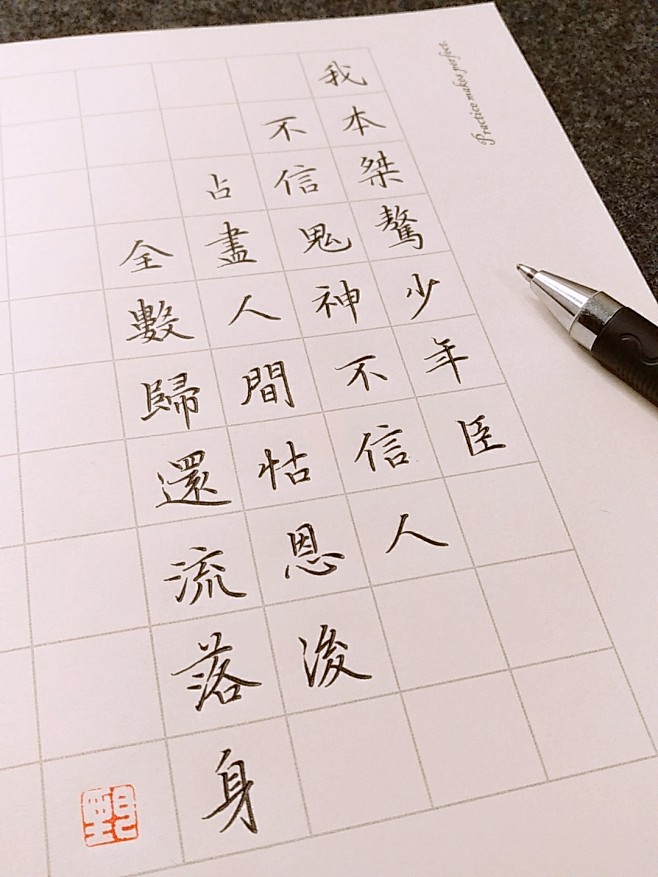 Practice makes perfect.
我本桀驁少年臣
不信鬼神不信人
占盡人間怙恩後
全數歸還流落身